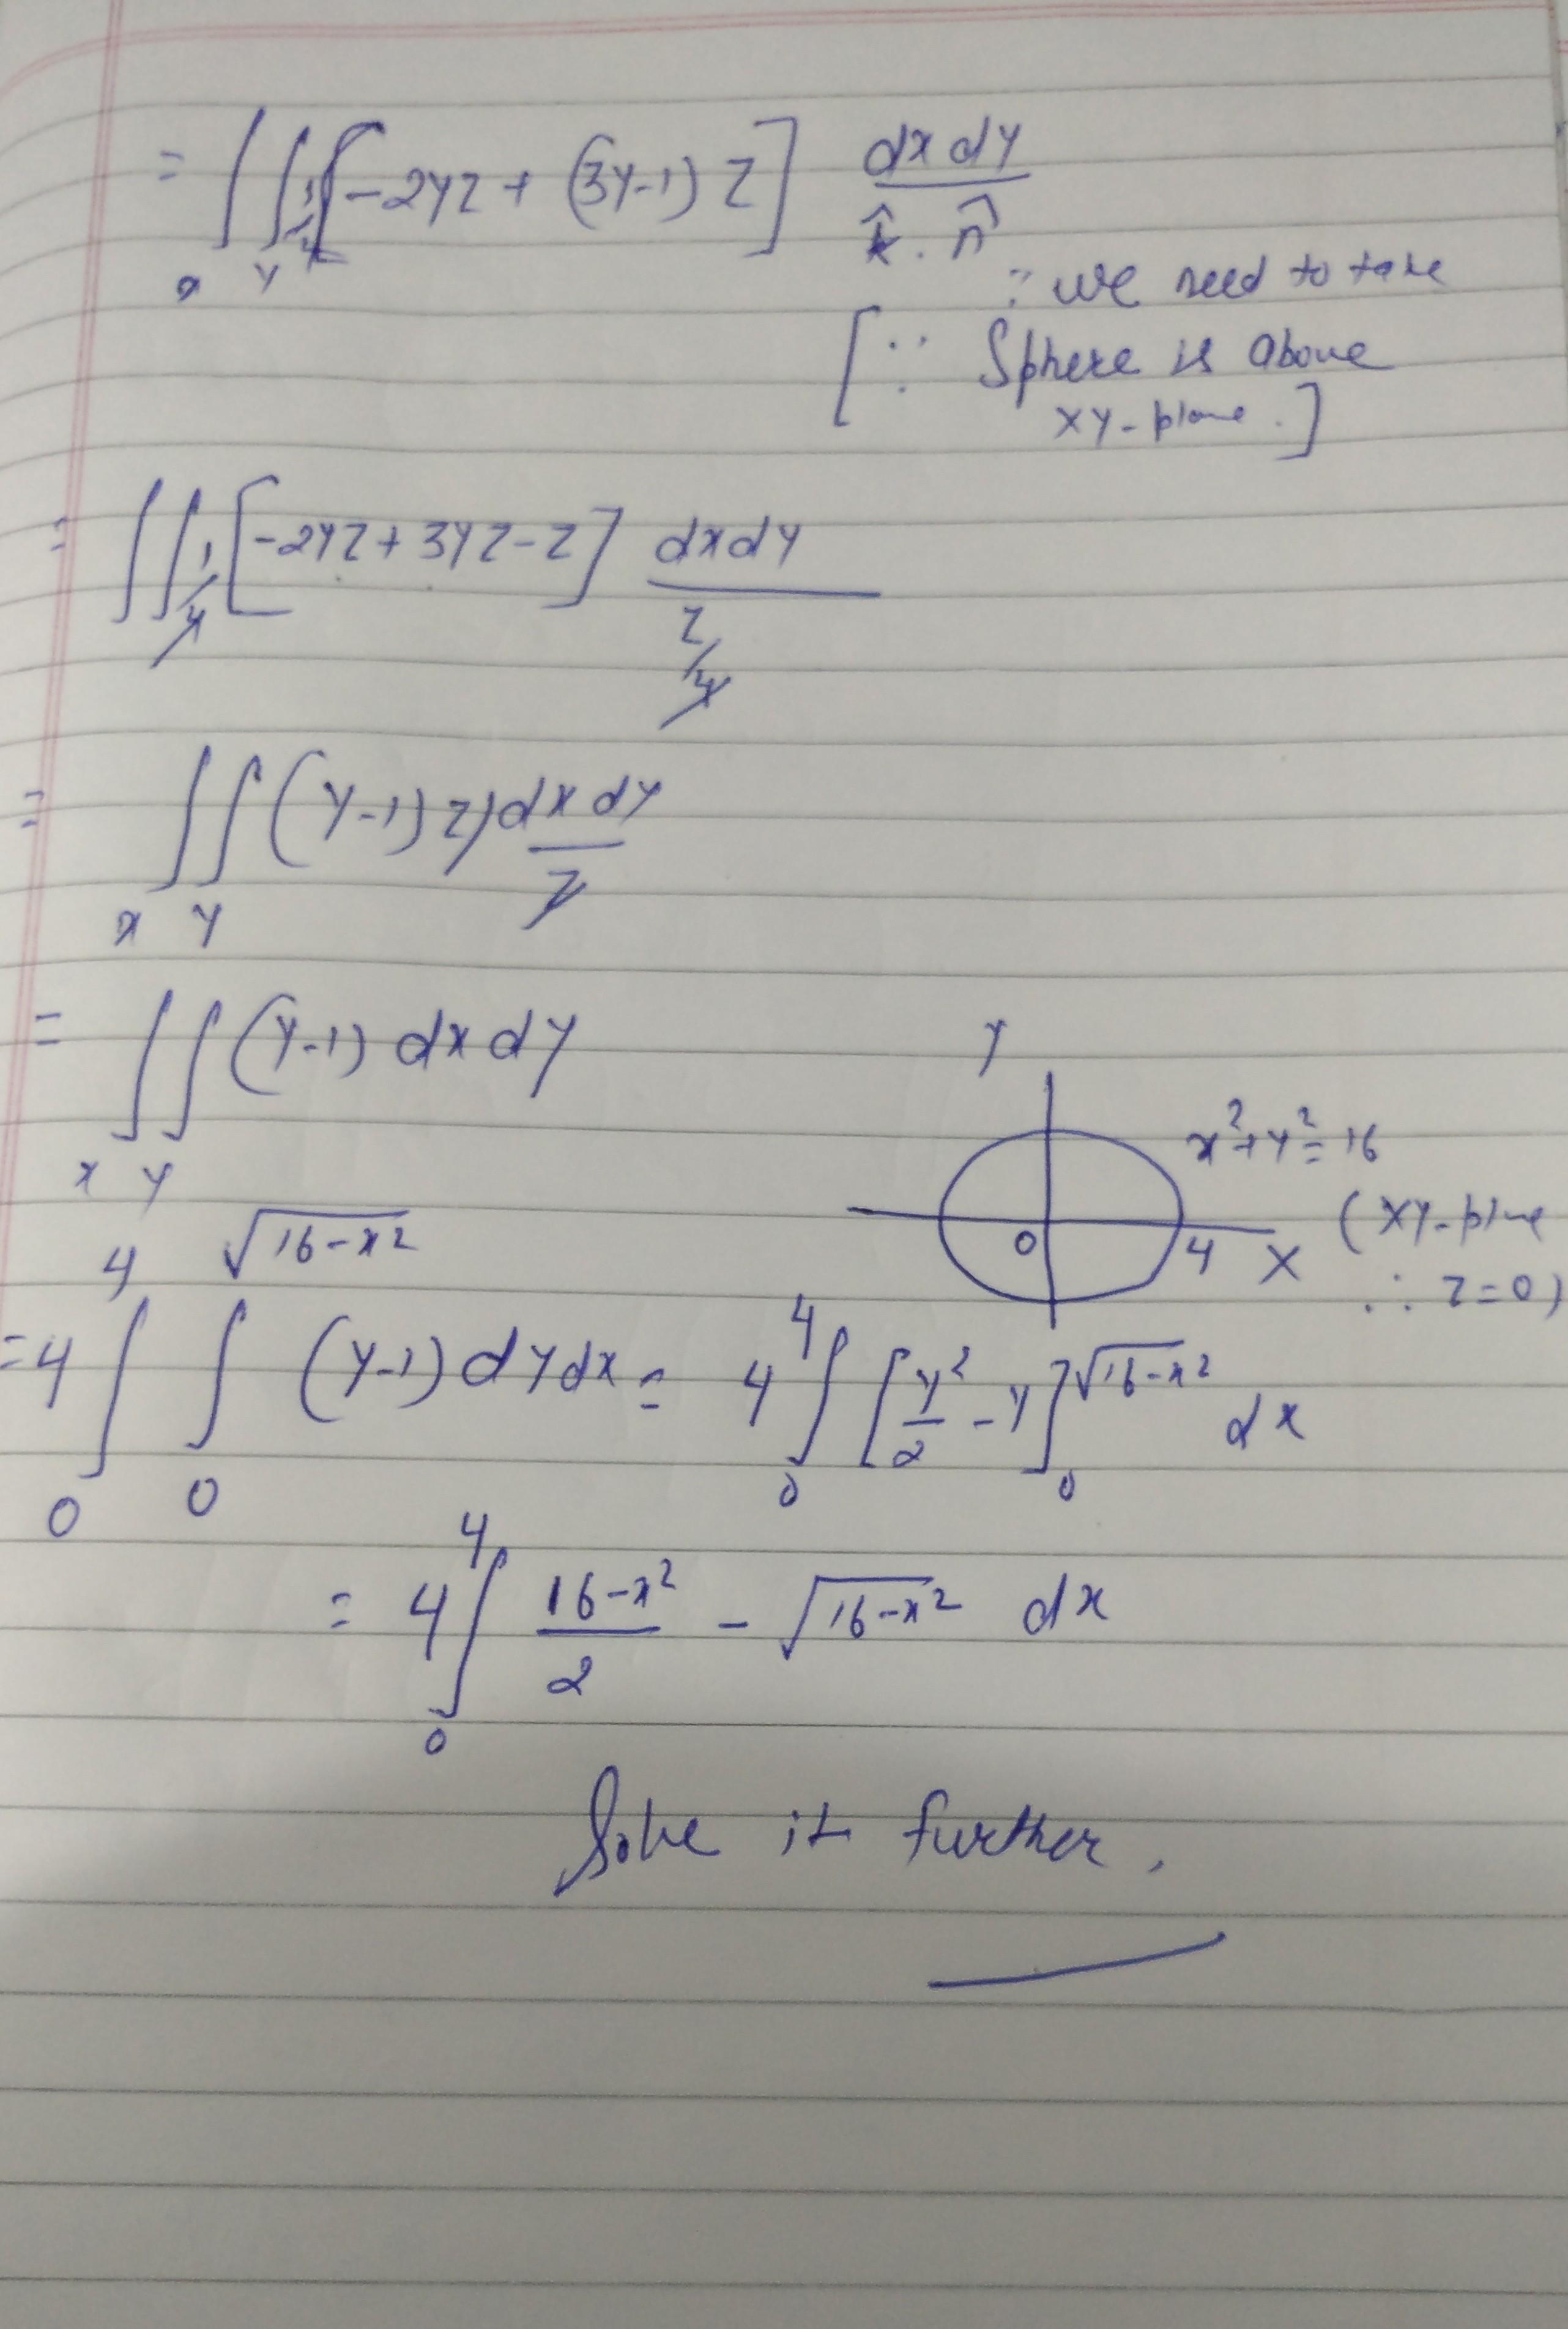 = ∫∫ 1/4 [-2yz + (3y-1) z] dx dy / k̂ . n̂
x y
∵ we need to take
[∵ Sphere is above
xy-plane.]
= ∫∫ 1/4 [-2yz + 3yz - z] dx dy / z/4
= ∫∫ (y-1) z) dx dy / z
x y
= ∫∫ (y-1) dx dy
x y
Y
x² + y² = 16
(XY-plane
∴ z = 0)
0 4 X
= 4 ∫₀⁴ ∫₀^√(16-x²) (y-1) dy dx = 4 ∫₀⁴ [y²/2 - y]₀^√(16-x²) dx
= 4 ∫₀⁴ (16-x²)/2 - √(16-x²) dx
Solve it further.